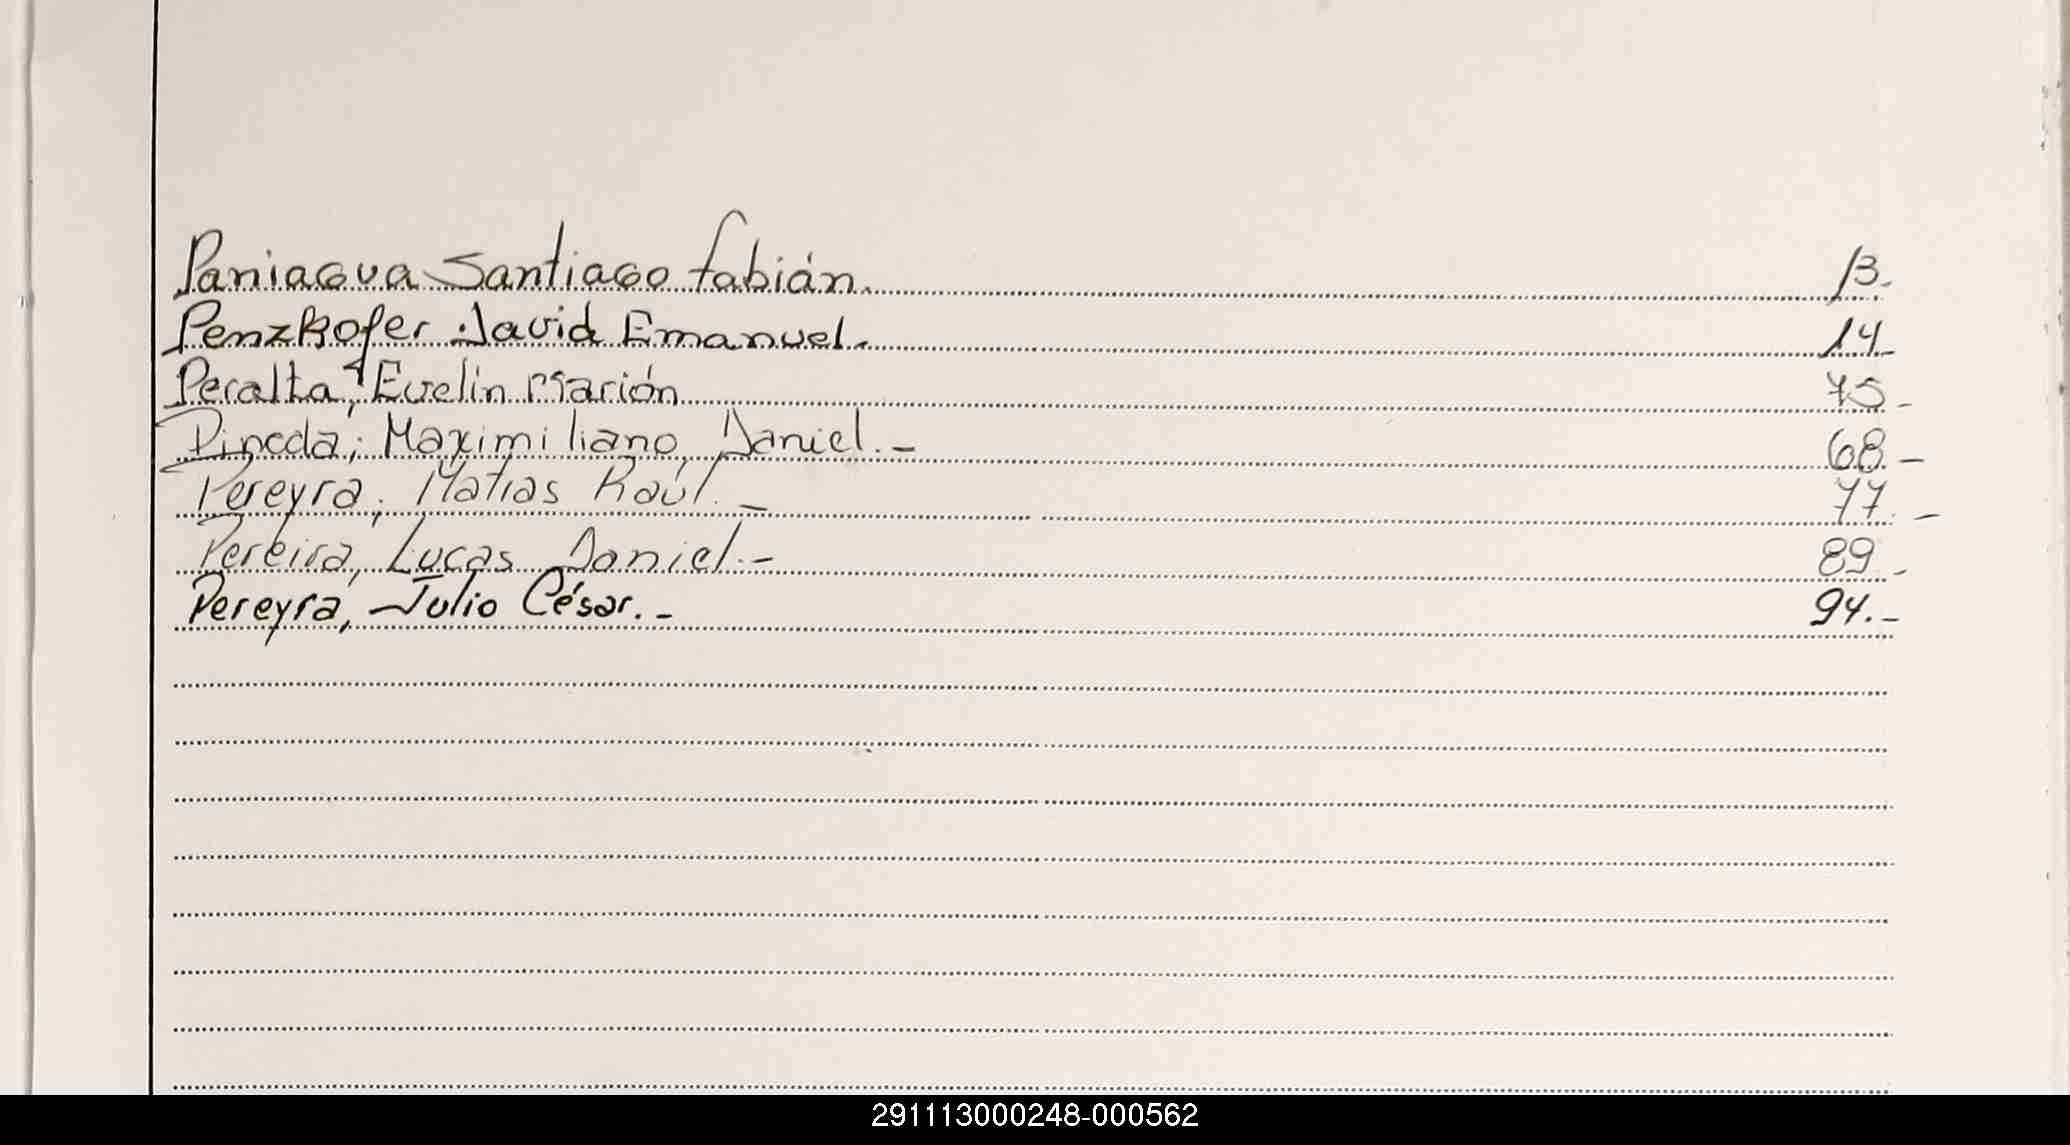 Paniagua Santiago Fabián. 13.-
Penzkofer David Emanuel. 14.-
Peralta, Evelin Marión 75.-
Pineda, Maximiliano, Daniel.- 68.-
Pereyra, Matias Raúl.- 77.-
Pereira, Lucas Daniel.- 89.-
Pereyra, Julio César.- 94.-
291113000248-000562